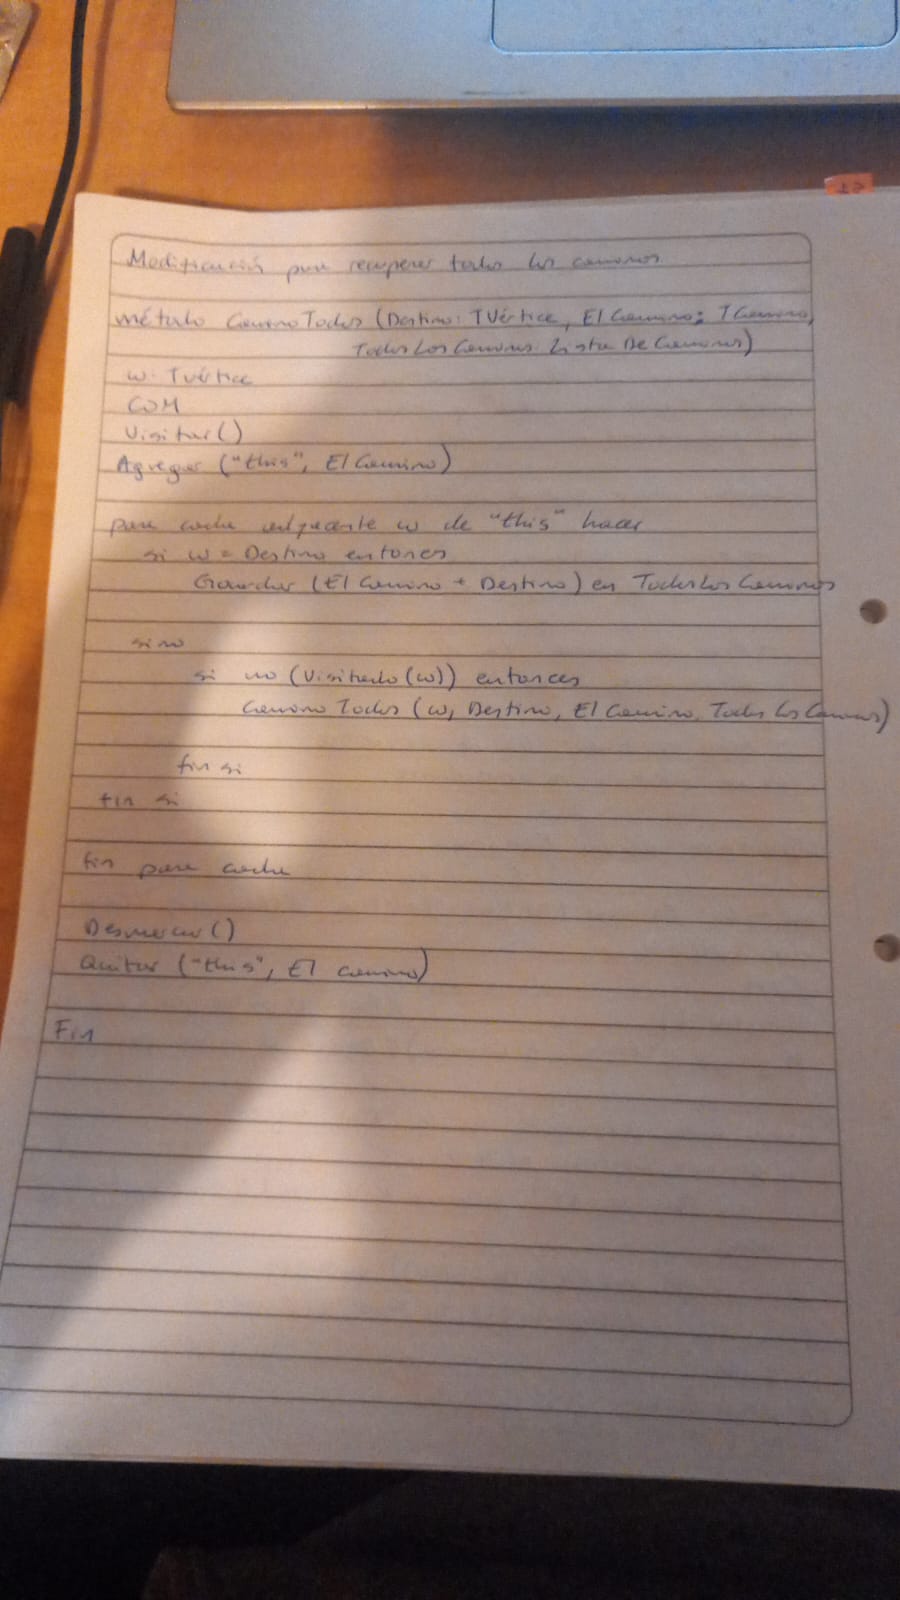 Modificación para recuperar todos los caminos
método CaminoTodos (Destino: TVértice, El Camino: TCamino,
TodosLosCaminos: Lista De Caminos)
w: TVértice
COM
Visitar()
Agregar ("this", El Camino)
para cada adyacente w de "this" hacer
si w = Destino entonces
Guardar (El Camino + Destino) en TodosLosCaminos
sino
si no (Visitado (w)) entonces
Camino Todos (w, Destino, El Camino, Todos Los Caminos)
fin si
fin si
fin para cada
Desmarcar()
Quitar ("this", El camino)
Fin